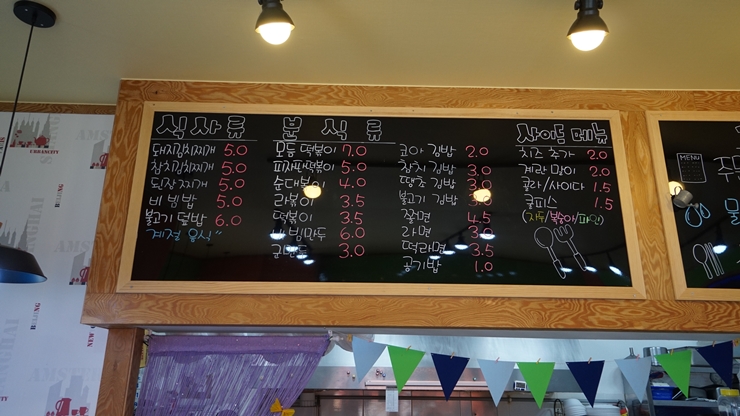 식사류
돼지김치찌개 5.0
참치김치찌개 5.0
된장찌개 5.0
비빔밥 5.0
불고기 덮밥 6.0
"계절 음식"
분식류
모듬 떡볶이 7.0
피자판떡볶이 5.0
순대볶이 4.0
라볶이 3.5
떡볶이 3.5
비빔만두 6.0
군만두 3.0
코아 김밥 2.0
참치 김밥 3.0
땡초 김밥 3.0
불고기 김밥
쫄면 4.5
라면 3.0
떡라면 3.5
공기밥 1.0
사이드 메뉴
치즈 추가 2.0
계란 말이 2.0
콜라/사이다 1.5
쿨피스 1.5
(자두/복숭아/파인)
MENU
주
물
URBANCITY
NEW